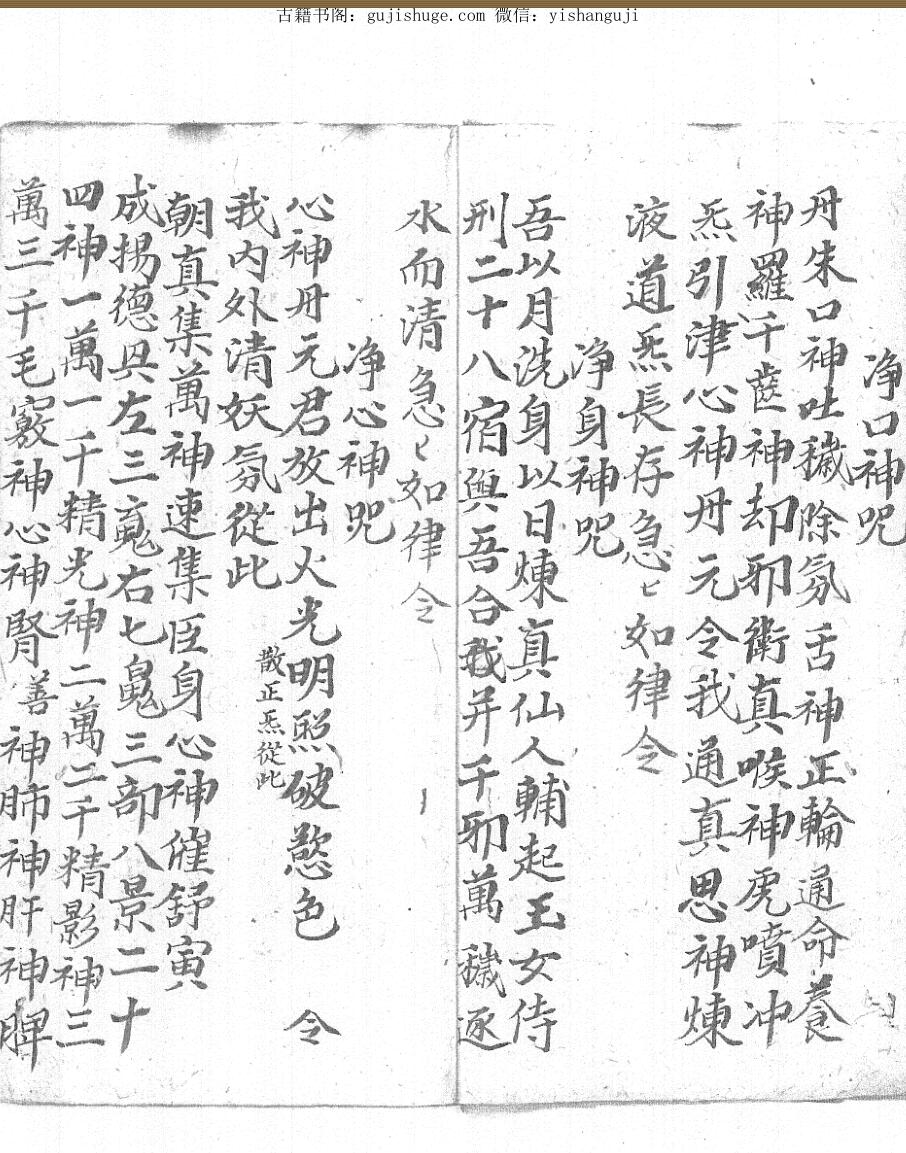 古籍书阁：gujishuge.com 微信：yishanguji
净口神咒
丹朱口神吐穢除氛舌神正輪通命養
神羅千齒神却邪衛真喉神虎噴冲
炁引津心神丹元令我通真思神煉
液道炁長存急〻如律令
净身神咒
吾以月洗身以日煉真仙人輔起玉女侍
刑二十八宿與吾合我并千邪萬穢逐
水而清急〻如律令
净心神咒
心神丹元君放出火光明照破慾色 令
我内外清妖氛從此
散正炁從此
朝真集萬神速集臣身心神催舒寅
成揚德具左三䰟右七䰟三部八景二十
四神一萬一千精光神二萬二千精影神三
萬三千毛竅神心神腎善神肺神肝神脾